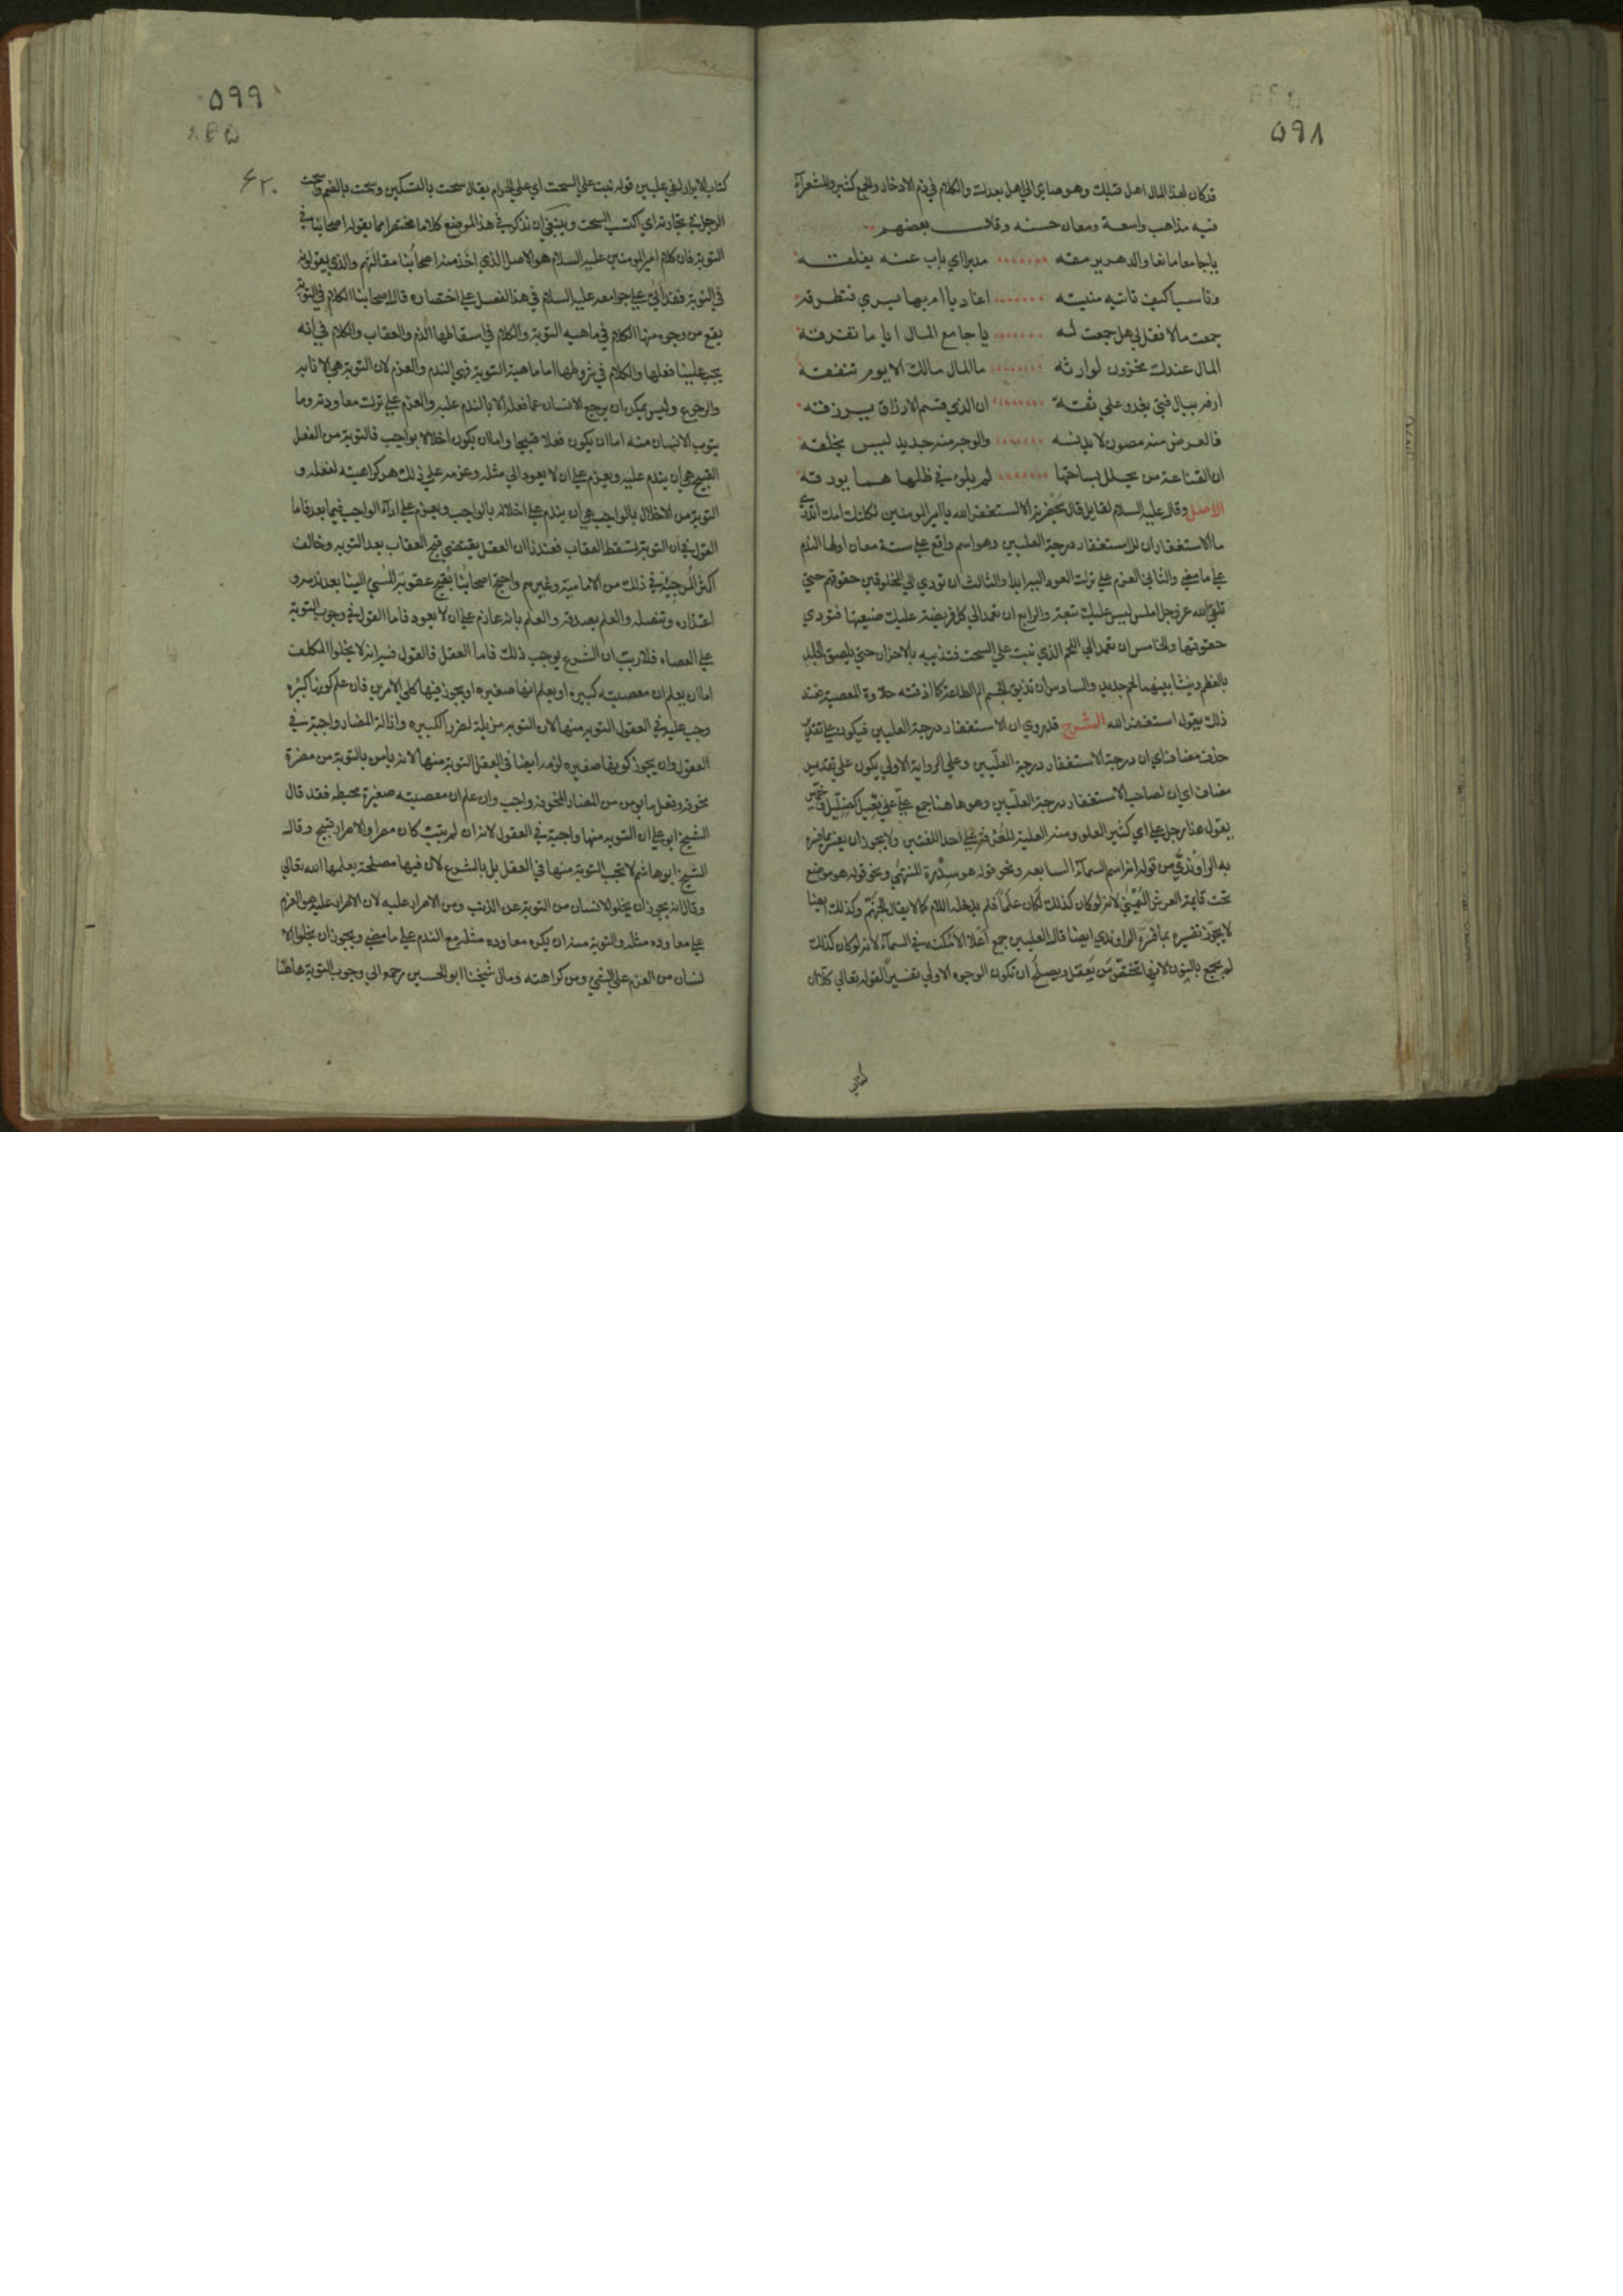 ٥٩٨
قد كان لهذا المال اهل قبلك وهو صاير الي اهل بعدك والكلام في ذم الادخار والجمع كثير وللشعرآء
فيه مذاهب واسعة ومعان حسنه وقال بعضهم
ياجامعا مانعا والدهر يرمقه مدبرا اي باب عنه يغلقه
وناسيا كيف تاتيه منيته اغاديا ام بها يسري فتطرقه
جمعت مالا فقل لي هل جمعت له يا جامع المال اياما تفرقه
المال عندك مخزون لوارثه ما المال مالك الا يوم تنفقه
ارفه ببال فتي يغدو علي ثقة ان الذي قسم الارزاق يرزقه
فالعرض منه مصون لا يدنسه والوجه منه جديد ليس يخلقه
ان القناعة من يحلل بساحتها لم يلق في ظلها هما يورقه
الاصل وقال عليه السلام لقايل قال بحضرته الاستغفر الله يا امير المومنين ثكلتك امك اتدري
ما الاستغفار ان للاستغفار درجة العليين وهو اسم واقع علي ستة معان اولها الندم
علي ما مضي والثاني العزم علي ترك العود اليه ابدا والثالث ان تودي الي المخلوقين حقوقهم حتي
تلقي الله عز وجل املس ليس عليك تبعة والرابع ان تعمد الي كل فريضة عليك ضيعتها فتودي
حقوقها والخامس ان تعمد الي اللحم الذي نبت علي السحت فتذيبه بالاحزان حتي يلصق الجلد
بالعظم وينشا بينهما لحم جديد والسادس ان تذيق الجسم الم الطاعة كما اذقته حلاوة المعصية فعند
ذلك يقول استغفر الله الشرح قد روي ان الاستغفار درجة العليين فيكون علي تقدير
حذف مضاف اي ان درجة الاستغفار درجة العليين وعلي الرواية الاولي يكون علي تقدير
مضاف اي ان لصاحب الاستغفار درجة العليين وهو هاهنا جمع عليّ علي فعيل كضليل وخمير
يقول هذا رجل علي اي كثير العلو ومنه العلية للغرفة علي احد اللغتين ولا يجوز ان يفسر بما فسره
به الراوندي من قوله انه اسم السمآء السابعه ونحو قوله هو سدرة المنتهي ونحو قوله هو موضع
تحت قايمة العرش اليمني لانه لو كان كذلك لكان علما فلم يدخله اللام كما لا يقال الجهنم وكذلك ايضا
لا يجوز تفسيره بما فسره الراوندي ايضا قال العليين جمع اعلا الامكنه في السمآء لانه لو كان كذلك
لم يجمع بالنون لانها تختص من يعقل ويصلح ان تكون الوجوه الاولي تفسيرا لقوله تعالي كلا ان
كتاب
٥٩٩
٦٢٠
كتاب الابرار لفي عليين قوله نبت علي السحت اي علي الحرام يقال سحت بالتسكين وسحت بالضم واسحت
الرجل في تجارته اي اكتسب السحت وينبغي ان نذكر في هذا الموضع كلاما مختصرا مما يقوله اصحابنا في
التوبة فان كلام امير المومنين عليه السلام هو الاصل الذي اخذ منه اصحابنا مقالتهم والذي يقولونه
في التوبة فقد اتي علي جوامعه عليه السلام في هذا الفصل علي اختصاره قال اصحابنا الكلام في التوبة
يقع من وجوه منها الكلام في ماهيه التوبة والكلام في اسقاطها الذم والعقاب والكلام في انه
يجب علينا فعلها والكلام في شروطها اما ماهية التوبة فهي الندم والعزم لان التوبة هي الانابه
والرجوع وليس يمكن ان يرجع الانسان عما فعله الا بالندم عليه والعزم علي ترك معاودته وما
يتوب الانسان منه اما ان يكون فعلا قبيحا واما ان يكون اخلالا بواجب فالتوبة من الفعل
القبيح هي ان يندم عليه ويعزم علي ان لا يعود الي مثله وعزمه علي ذلك هو كراهيته لفعله و
التوبة من الاخلال بالواجب هي ان يندم علي اخلاله بالواجب ويعزم علي ادآء الواجب فيما بعد فاما
القول في ان التوبة تسقط العقاب فعندنا ان العقل يقتضي قبح العقاب بعد التوبه وخالف
اكثر المرجئة في ذلك من الامامية وغيرهم واحتج اصحابنا بقبح عقوبة المسي الينا بعد ندمه و
اعتذاره وتنصله والعلم بصدقه والعلم بانه عازم علي ان لا يعود فاما القول في وجوب التوبة
علي العصاه فلا ريب ان الشرع يوجب ذلك فاما العقل فالقول فيه انه لا يخلوا المكلف
اما ان يعلم ان معصيته كبيره او يعلم انها صغيره او يجوز فيها كلي الامرين فان علم كونها كبيره
وجب عليه في العقول التوبه منها لان التوبه مزيلة لضرر الكبيره وازالة المضار واجبة في
العقول وان يجوز كونها صغيره لزمه ايضا في العقل التوبة منها لانه يامن بالتوبة من مضرة
مخوفه وفعل ما يومن من المضار المخوفه واجب وان علم ان معصيته صغيرة محبطه فقد قال
الشيخ ابو علي ان التوبه منها واجبة في العقول لانه ان لم يتب كان مصرا والاصرار قبيح وقال
الشيخ ابو هاشم لا تجب التوبة منها في العقل بل بالشرع لان فيها مصلحة يعلمها الله تعالي
وقال انه يجوز ان يخلو الانسان من التوبة عن الذنب ومن الاصرار عليه لان الاصرار عليه هو العزم
علي معاوده مثله والتوبة منه ان يكره معاوده مثله مع الندم علي ما مضي ويجوز ان يخلوا الا
نسان من العزم علي الشي ومن كراهته ومال شيخنا ابو الحسين رحمه الي وجوب التوبة هاهنا